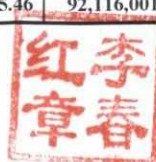 5.46 92,116,001
李春
红章